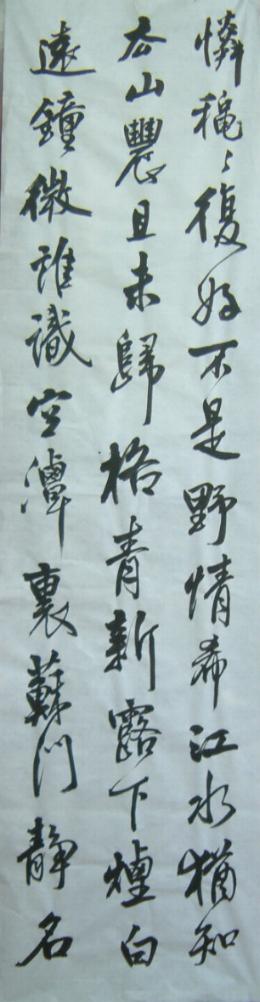 憐穐々復好不是野情希江水猶知
去山農且未歸格青新露下煙白
遠鐘微誰識空潭裏蘇門靜名